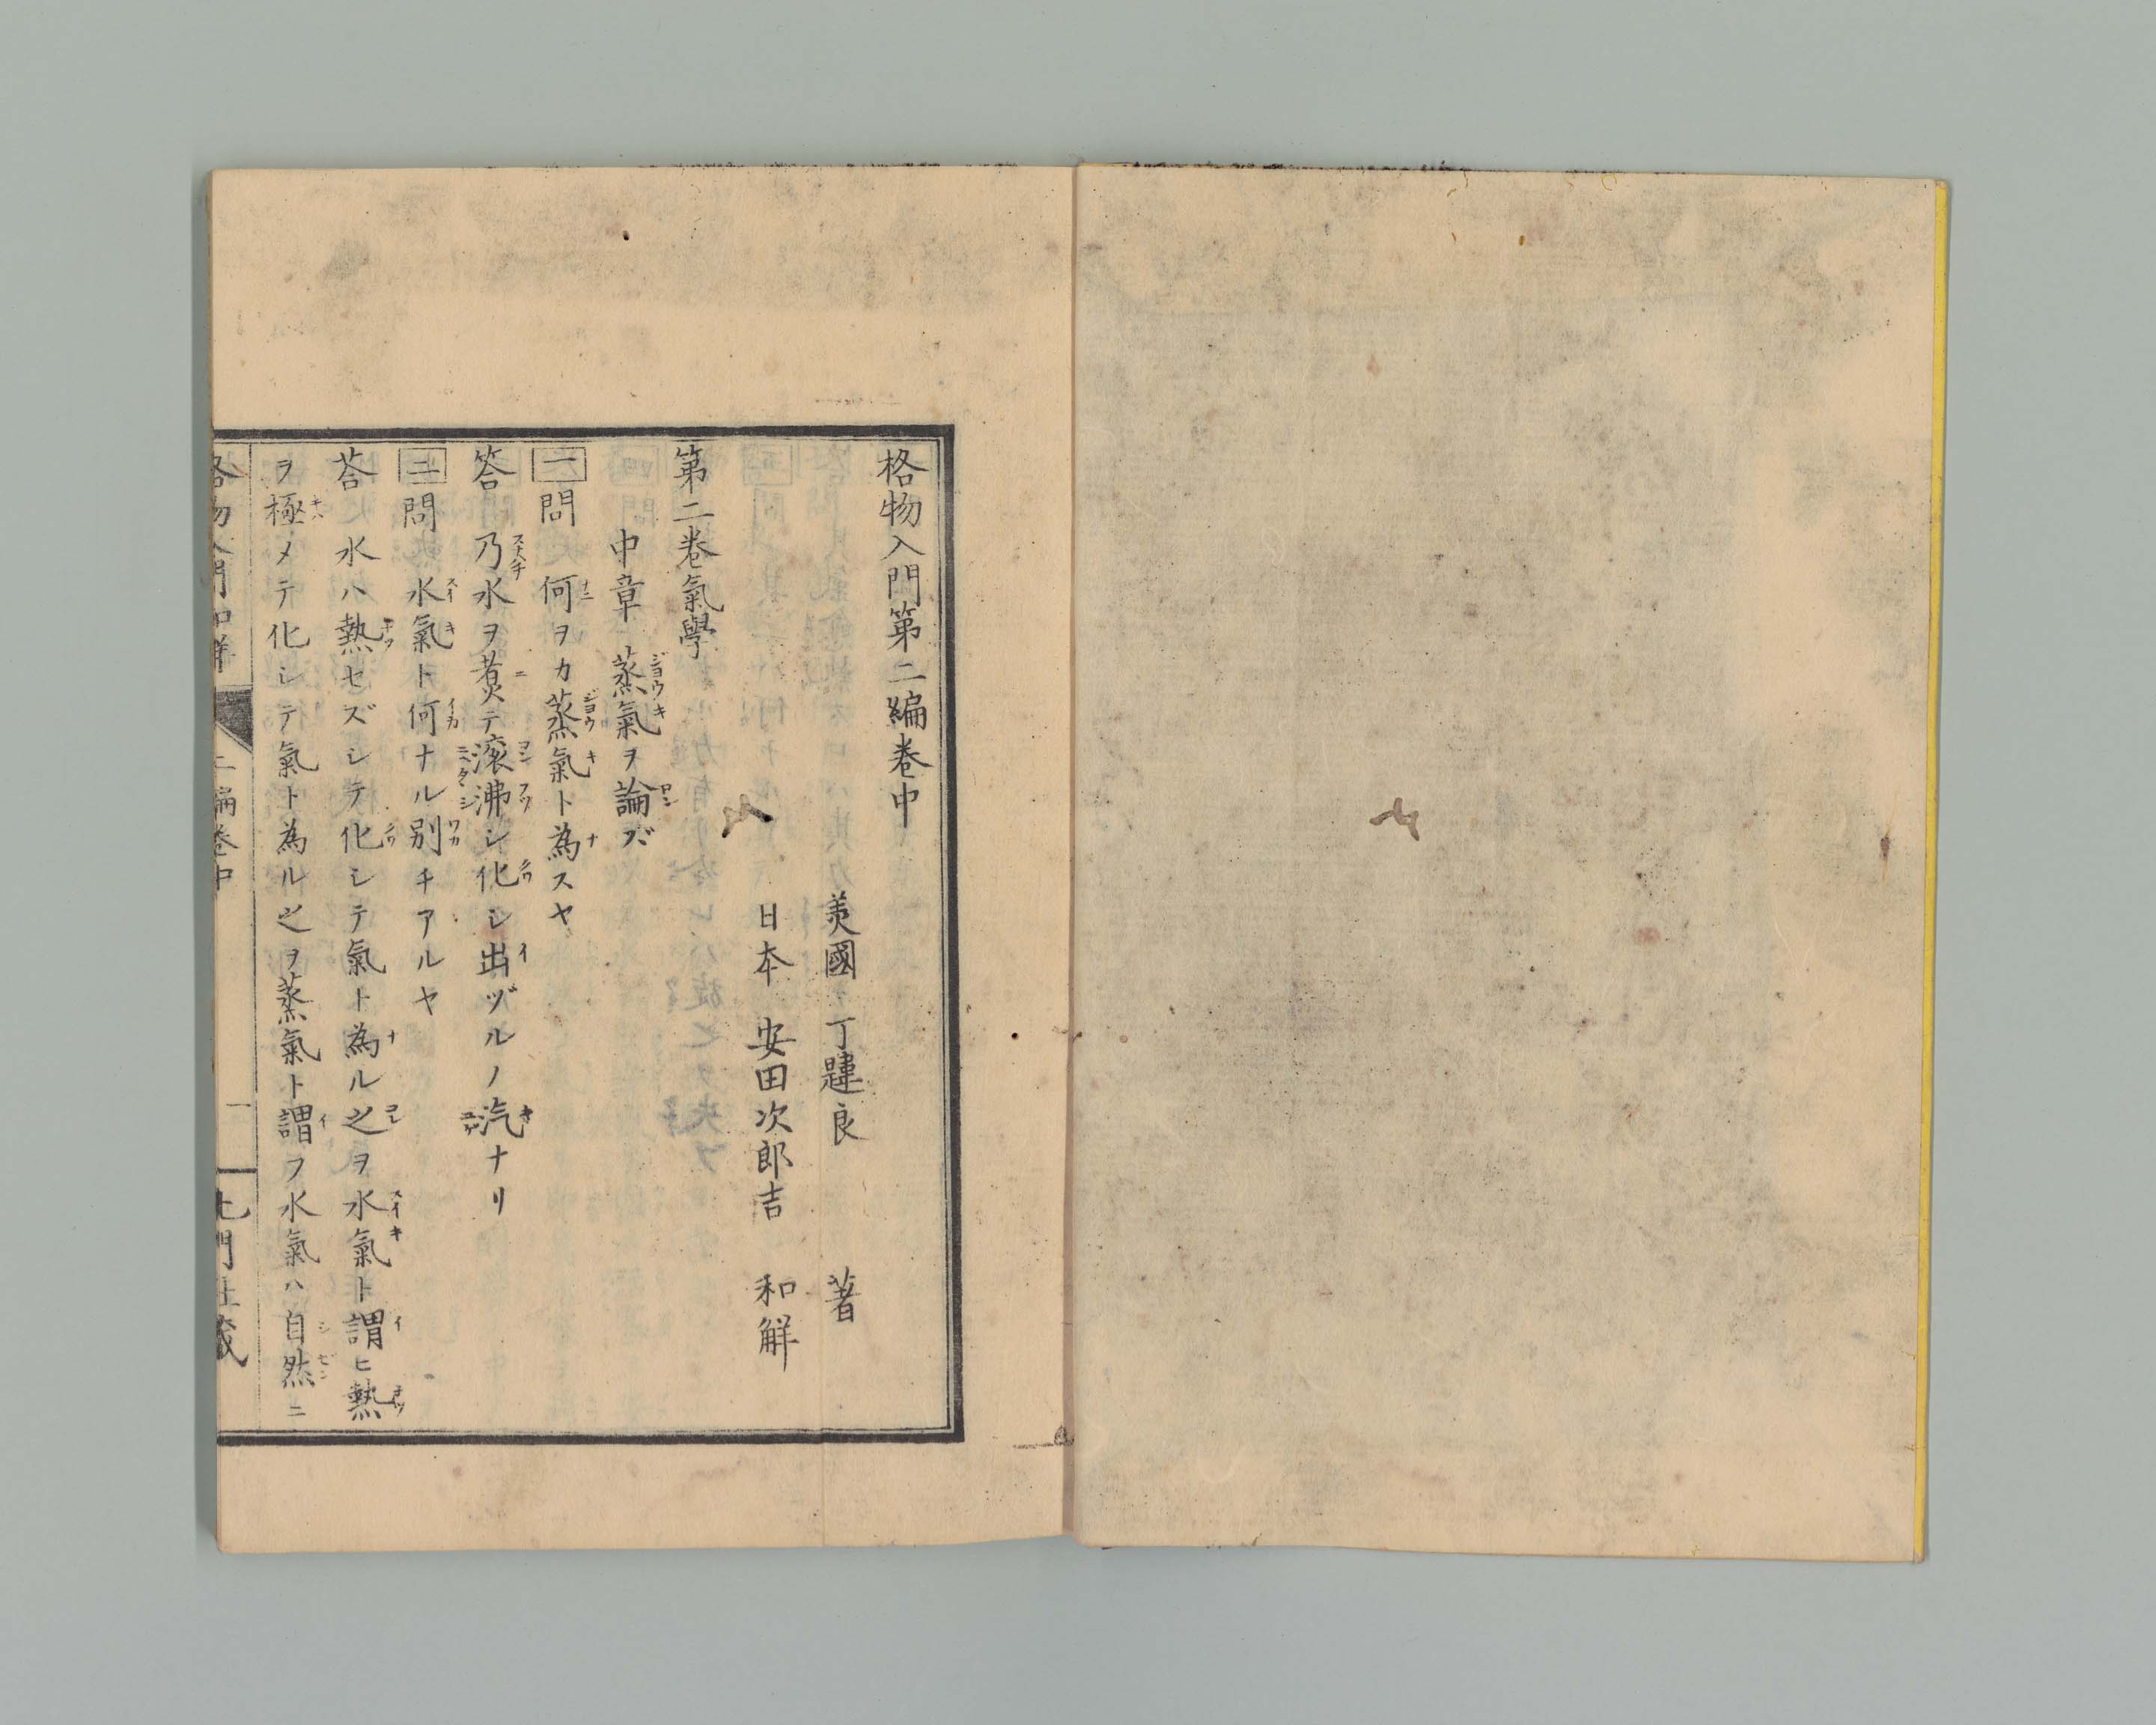 格物入門第二編卷中
美國　丁韙良　著
日本　安田次郎吉　和解
第二卷氣學
中章　蒸氣ヲ論ズ
一問　何ヲカ蒸氣ト為スヤ
答　乃水ヲ煮テ滚沸シ化シ出ヅルノ汽ナリ
二問　水氣ト何ナル別チアルヤ
荅　水ハ熱セズシテ化シテ氣ト為ル之ヲ水氣ト謂ヒ熱
ヲ極メテ化シテ氣ト為ル之ヲ蒸氣ト謂フ水氣ハ自然ニ
格物入門和解　二編卷中　一　北門社藏